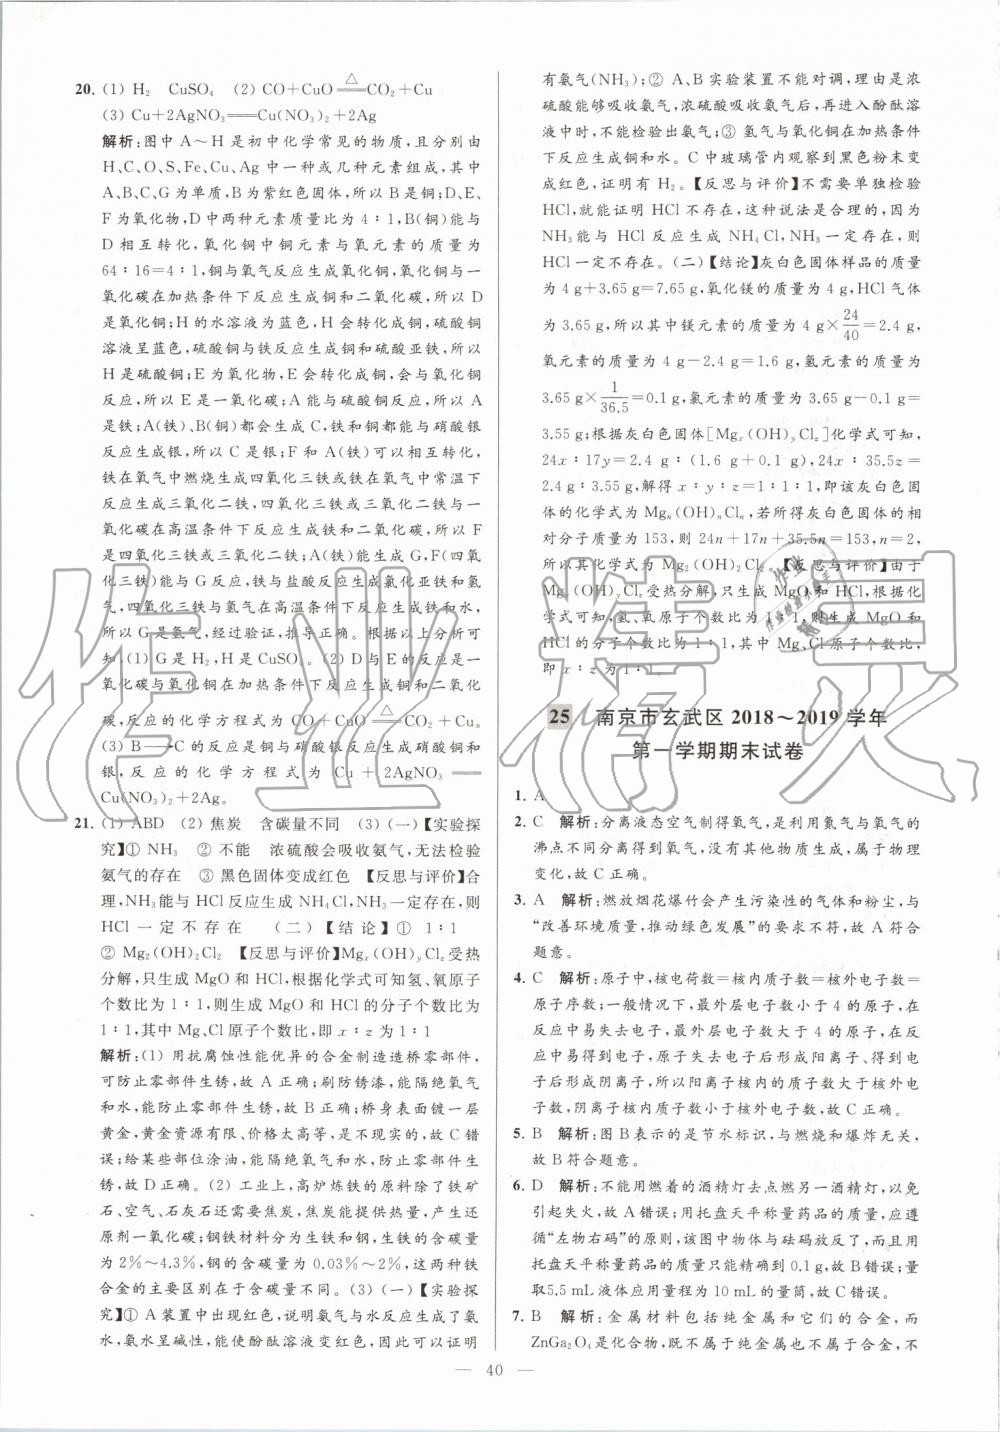 20. (1) H₂ CuSO₄ (2) CO+CuO =△= CO₂+Cu
(3) Cu+2AgNO₃══Cu(NO₃)₂+2Ag
解析:图中 A～H 是初中化学常见的物质,且分别由
H、C、O、S、Fe、Cu、Ag 中一种或几种元素组成,其中
A、B、C、G 为单质,B 为紫红色固体,所以 B 是铜;D、E、
F 为氧化物,D 中两种元素质量比为 4∶1,B(铜)能与
D 相互转化,氧化铜中铜元素与氧元素的质量为
64∶16=4∶1,铜与氧气反应生成氧化铜,氧化铜与一
氧化碳在加热条件下反应生成铜和二氧化碳,所以 D
是氧化铜;H 的水溶液为蓝色,H 会转化成铜,硫酸铜
溶液呈蓝色,硫酸铜与铁反应生成铜和硫酸亚铁,所以
H 是硫酸铜;E 为氧化物,E 会转化成铜,会与氧化铜
反应,所以 E 是一氧化碳;A 能与硫酸铜反应,所以 A
是铁;A(铁)、B(铜)都会生成 C,铁和铜都能与硝酸银
反应生成银,所以 C 是银;F 和 A(铁)可以相互转化,
铁在氧气中燃烧生成四氧化三铁或铁在氧气中常温下
反应生成三氧化二铁,四氧化三铁或三氧化二铁与一
氧化碳在高温条件下反应生成铁和二氧化碳,所以 F
是四氧化三铁或三氧化二铁;A(铁)能生成 G,F(四氧
化三铁)能与 G 反应,铁与盐酸反应生成氯化亚铁和氢
气,四氧化三铁与氢气在高温条件下反应生成铁和水,
所以 G 是氢气,经过验证,推导正确。根据以上分析可
知,(1) G 是 H₂,H 是 CuSO₄。(2) D 与 E 的反应是一
氧化碳与氧化铜在加热条件下反应生成铜和二氧化
碳,反应的化学方程式为 CO+CuO =△= CO₂+Cu。
(3) B—→C 的反应是铜与硝酸银反应生成硝酸铜和
银,反应的化学方程式为 Cu+2AgNO₃══
Cu(NO₃)₂+2Ag。
21. (1) ABD (2) 焦炭 含碳量不同 (3) (一)【实验探
究】① NH₃ ② 不能 浓硫酸会吸收氨气,无法检验
氨气的存在 ③ 黑色固体变成红色 【反思与评价】合
理,NH₃能与 HCl 反应生成 NH₄Cl,NH₃一定存在,则
HCl 一定不存在 (二)【结论】① 1∶1
② Mg₂(OH)₂Cl₂ 【反思与评价】Mgₓ(OH)ᵧCl_z受热
分解,只生成 MgO 和 HCl,根据化学式可知氢、氧原子
个数比为 1∶1,则生成 MgO 和 HCl 的分子个数比为
1∶1,其中 Mg、Cl 原子个数比,即 x∶z 为 1∶1
解析:(1) 用抗腐蚀性能优异的合金制造造桥零部件,
可防止零部件生锈,故 A 正确;刷防锈漆,能隔绝氧气
和水,能防止零部件生锈,故 B 正确;桥身表面镀一层
黄金,黄金资源有限、价格太高等,是不现实的,故 C 错
误;给某些部位涂油,能隔绝氧气和水,防止零部件生
锈,故 D 正确。(2) 工业上,高炉炼铁的原料除了铁矿
石、空气、石灰石还需要焦炭,焦炭可提供热量,产生还
原剂一氧化碳;钢铁材料分为生铁和钢,生铁的含碳量
为 2%～4.3%,钢的含碳量为 0.03%～2%,这两种铁
合金的主要区别在于含碳量不同。(3) (一)【实验探
究】① A 装置中出现红色,说明氨气与水反应生成了氨
水,氨水呈碱性,能使酚酞溶液变红色,因此可以证明
有氨气(NH₃);② A、B 实验装置不能对调,理由是浓
硫酸能够吸收氨气,浓硫酸吸收氨气后,再进入酚酞溶
液中时,不能检验出氨气;③ 氢气与氧化铜在加热条件
下反应生成铜和水。C 中玻璃管内观察到黑色粉末变
成红色,证明有 H₂。【反思与评价】不需要单独检验
HCl,就能证明 HCl 不存在,这种说法是合理的,因为
NH₃能与 HCl 反应生成 NH₄Cl,NH₃一定存在,则
HCl 一定不存在。(二)【结论】灰白色固体样品的质量
为 4 g+3.65 g=7.65 g,氧化镁的质量为 4 g,HCl 气体
为 3.65 g,所以其中镁元素的质量为 4 g×24/40=2.4 g,
氧元素的质量为 4 g−2.4 g=1.6 g,氢元素的质量为
3.65 g×1/36.5=0.1 g,氯元素的质量为 3.65 g−0.1 g=
3.55 g;根据灰白色固体[Mgₓ(OH)ᵧCl_z]化学式可知,
24x∶17y=2.4 g∶(1.6 g+0.1 g),24x∶35.5z=
2.4 g∶3.55 g,解得 x∶y∶z=1∶1∶1,即该灰白色固
体的化学式为 Mgₙ(OH)ₙClₙ,若所得灰白色固体的相
对分子质量为 153,则 24n+17n+35.5n=153,n=2,
所以其化学式为 Mg₂(OH)₂Cl₂。【反思与评价】由于
Mgₓ(OH)ᵧCl_z受热分解,只生成 MgO 和 HCl,根据化
学式可知,氢、氧原子个数比为 1∶1,则生成 MgO 和
HCl 的分子个数比为 1∶1,其中 Mg、Cl 原子个数比,
即 x∶z 为 1∶1。
25 南京市玄武区 2018～2019 学年
第一学期期末试卷
1. A
2. C 解析:分离液态空气制得氧气,是利用氮气与氧气的
沸点不同分离得到氧气,没有其他物质生成,属于物理
变化,故 C 正确。
3. A 解析:燃放烟花爆竹会产生污染性的气体和粉尘,与
“改善环境质量,推动绿色发展”的要求不符,故 A 符合
题意。
4. C 解析:原子中,核电荷数=核内质子数=核外电子数=
原子序数;一般情况下,最外层电子数小于 4 的原子,在
反应中易失去电子,最外层电子数大于 4 的原子,在反
应中易得到电子,原子失去电子后形成阳离子、得到电
子形成阴离子,所以阳离子核内的质子数大于核外电
子数,阴离子核内质子数小于核外电子数,故 C 正确。
5. B 解析:图 B 表示的是节水标识,与燃烧和爆炸无关,
故 B 符合题意。
6. D 解析:不能用燃着的酒精灯去点燃另一酒精灯,以免
引起失火,故 A 错误;用托盘天平称量药品的质量,应遵
循“左物右码”的原则,该图中物体与砝码放反了,而且用
托盘天平称量药品的质量精确到 0.1 g,故 B 错误;量
取5.5 mL 液体应用量程为 10 mL的量筒,故 C 错误。
7. B 解析:金属材料包括纯金属和它们的合金,而
ZnGa₂O₄是化合物,既不属于纯金属也不属于合金,不
— 40 —
作业精灵